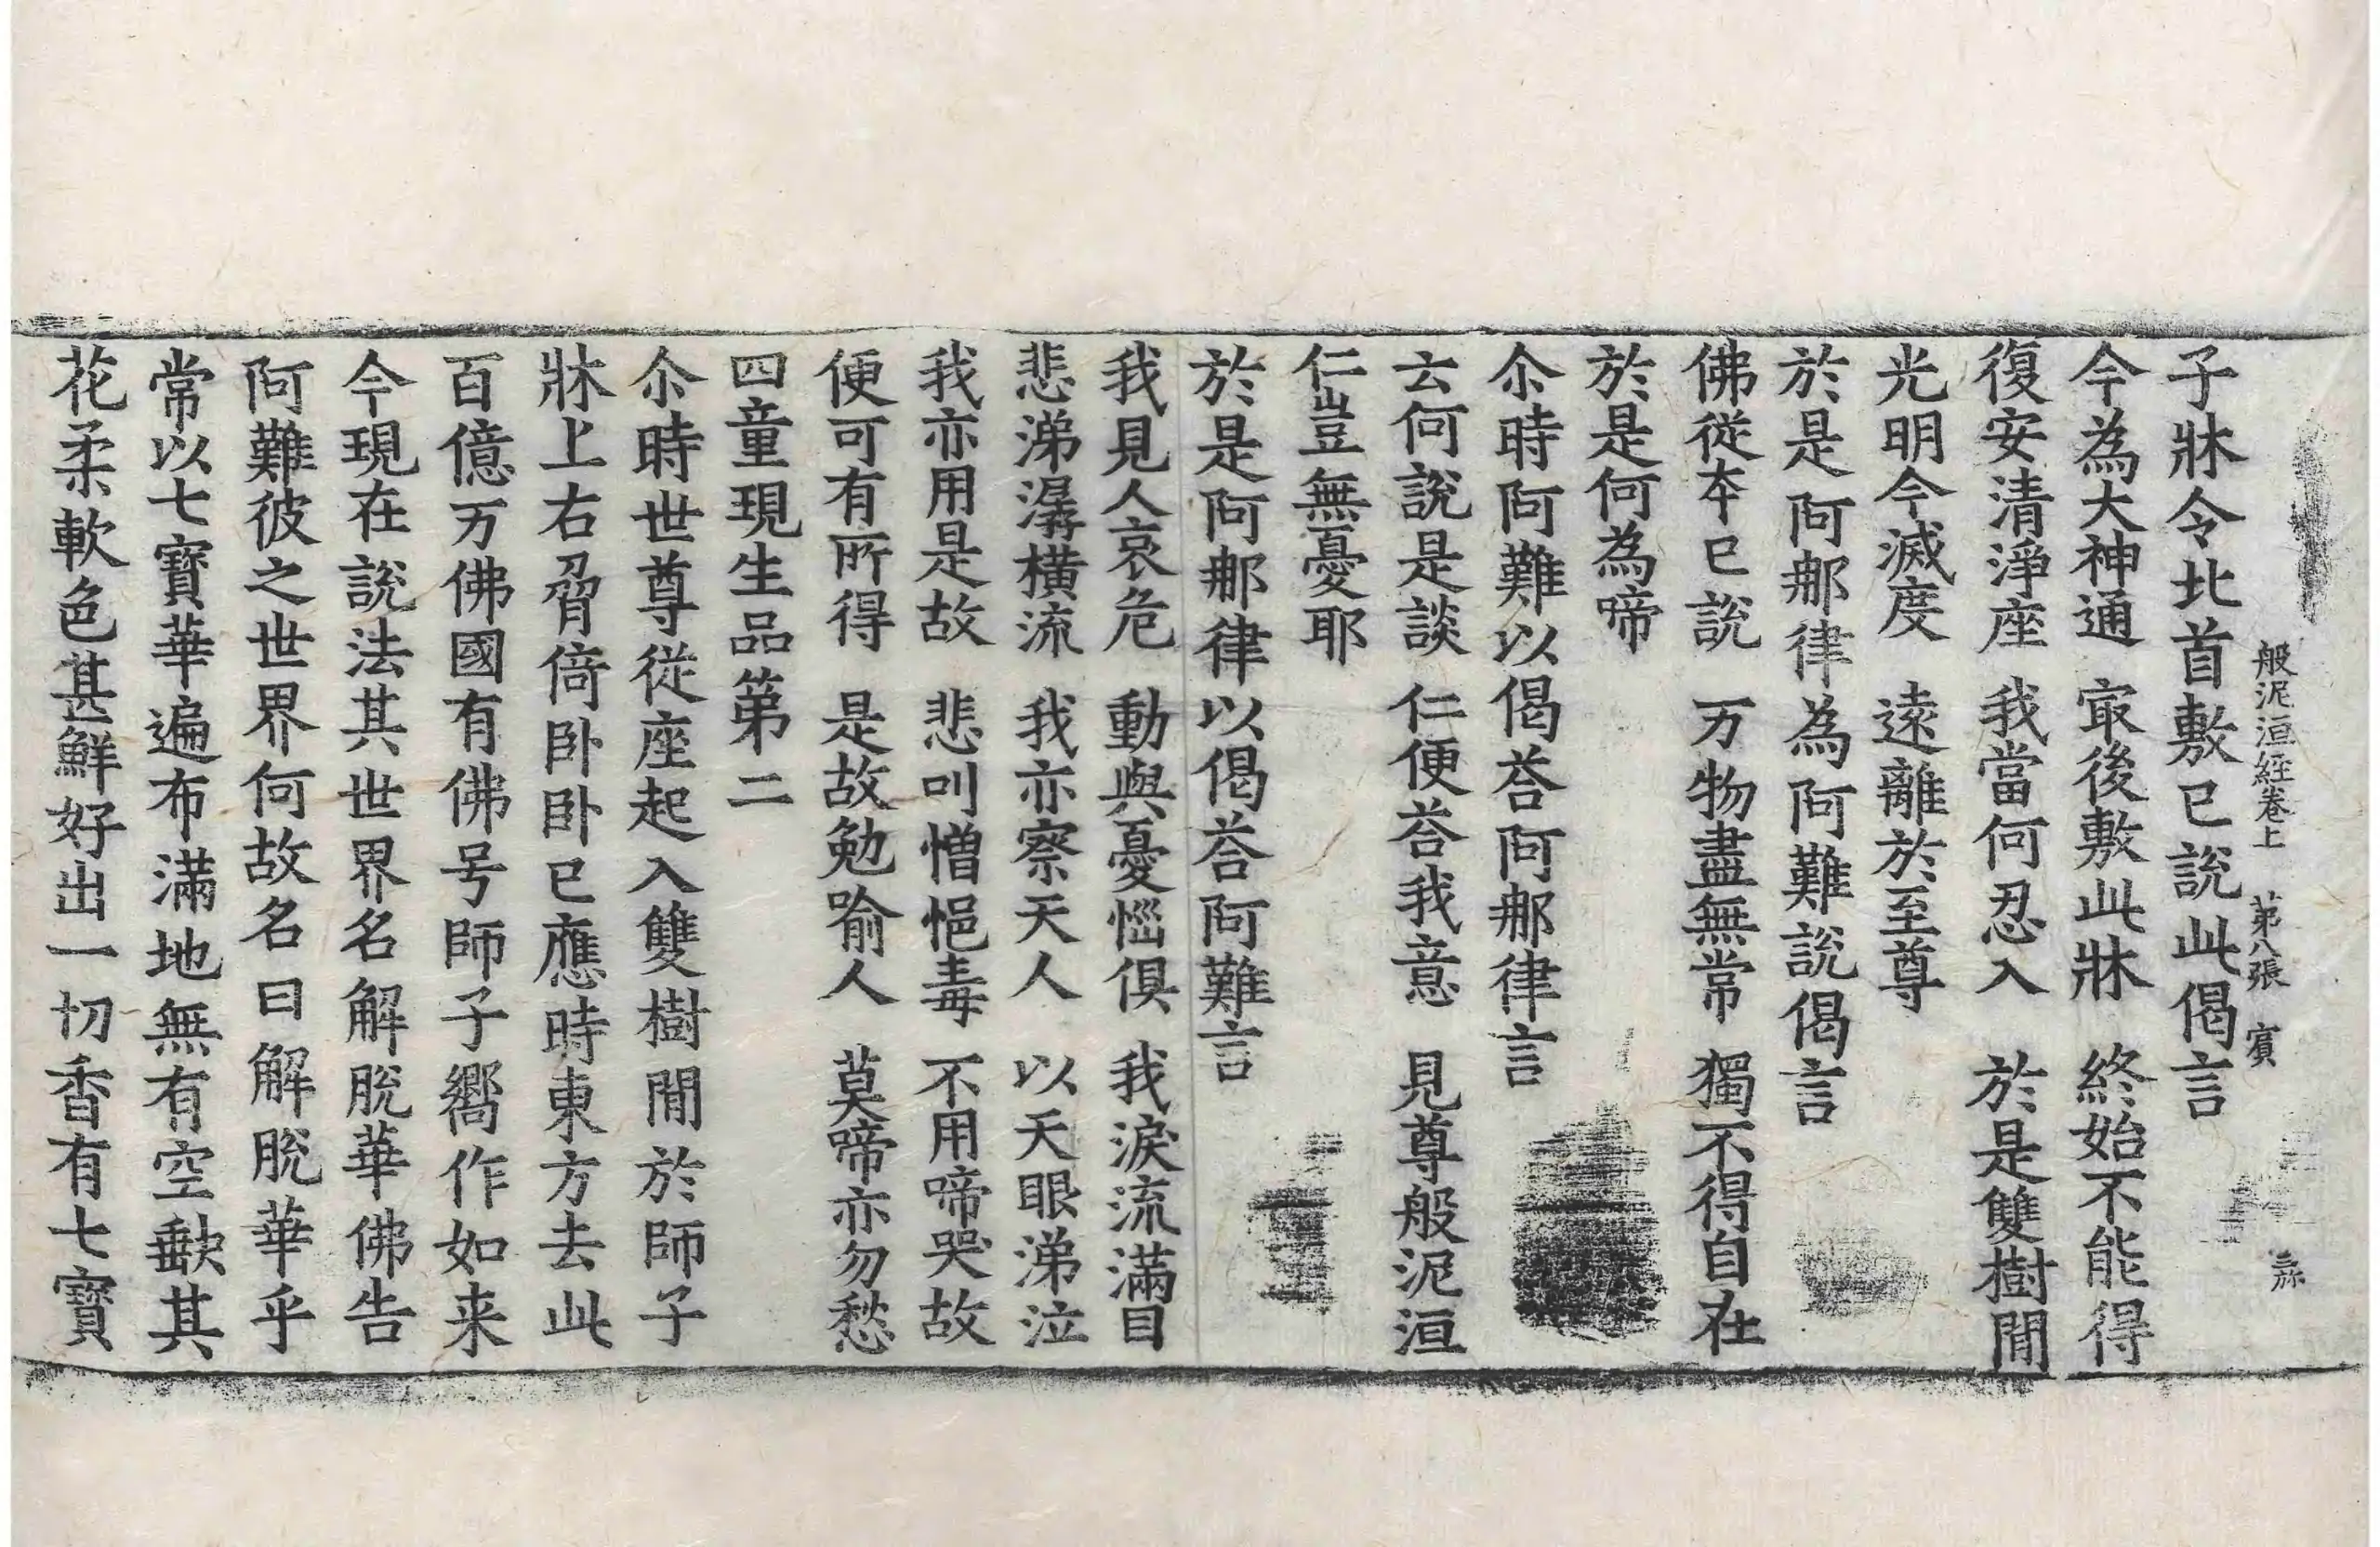 般泥洹経卷上 苐八張 賓
子牀令北首敷已說此偈言
今為大神通 㝡後敷此牀 終始不能得
復安清淨座 我當何忍入 於是雙樹閒
光明今滅度 遠離於至尊
於是阿那律為阿難說偈言
佛從夲已說 万物盡無常 獨不得自在
於是何為啼
尒時阿難以偈荅阿那律言
云何說是談 仁便荅我意 見尊般泥洹
仁豈無憂耶
於是阿那律以偈荅阿難言
我見人哀危 動與憂惱俱 我淚流滿目
悲涕潺橫流 我亦察天人 以天眼涕泣
我亦用是故 悲叫憎悒毒 不用啼哭故
便可有所得 是故勉喻人 莫啼亦勿愁
四童現生品第二
尒時世尊從座起入雙樹閒於師子
牀上右脅倚卧卧已應時東方去此
百億万佛國有佛号師子嚮作如来
今現在說法其世界名解脫華佛告
阿難彼之世界何故名曰解脫華乎
常以七寶華遍布滿地無有空缺其
花柔軟色甚鮮好出一切香有七寶